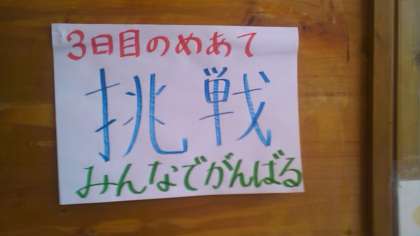 3日目のめあて
挑戦
みんなでがんばる